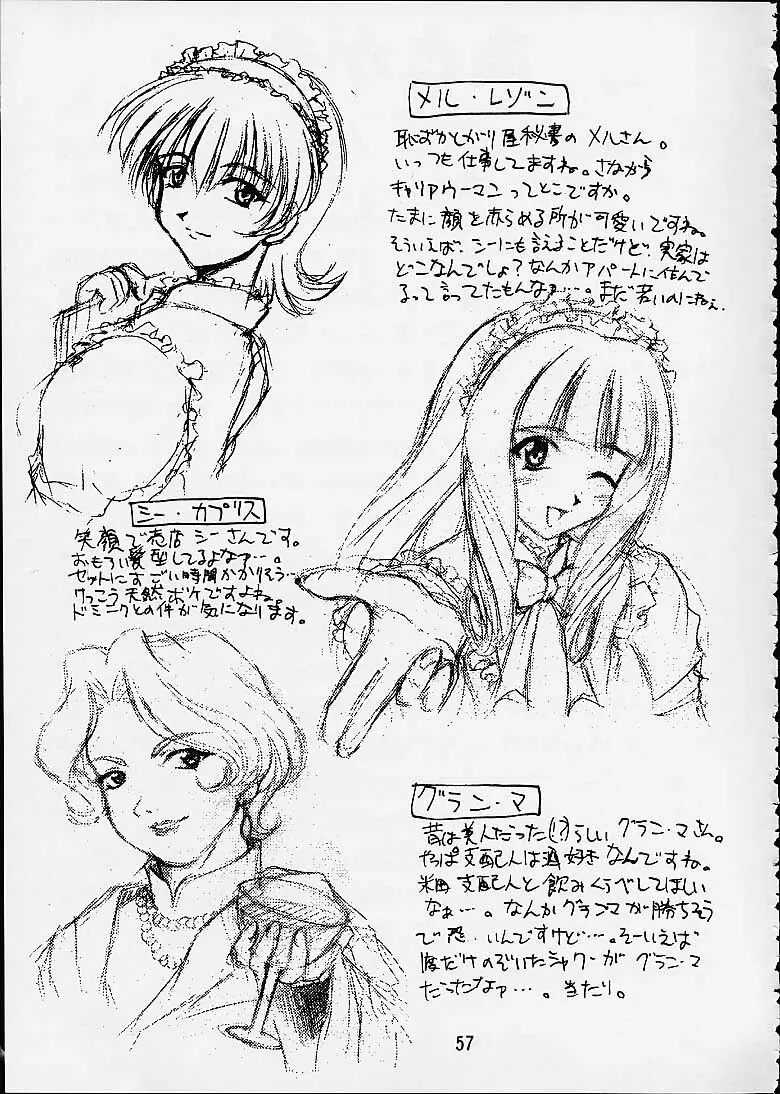 メル・レゾン
恥ずかしがり屋秘書のメルさん。
いっつも仕事してますね。さながら
キャリアウーマンってとこですか。
たまに顔を赤らめる所が可愛いですね。
そういえば、シーにも言えることだけど、実家は
どこなんでしょ?なんかアパートに住んで
るって言ってたもんなぁ…。まだ若いのにねぇ。
シー・カプリス
笑顔で売店 シーさんです。
おもろい髪型してるよなァ…。
セットにすごい時間かかりそう…
けっこう天然ボケですよね。
ドミニクとの件が気になります。
グラン・マ
昔は美人だった(!?)らしい グラン・マさん。
やっぱ支配人は酒好きなんですね。
米田支配人と飲みくらべしてほしい
なぁ…。なんかグランマが勝ちそう
で恐いんですけど…。そーいえば
度だけのぞいたシャワーが グラン・マ
だったなァ…。当たり。
57